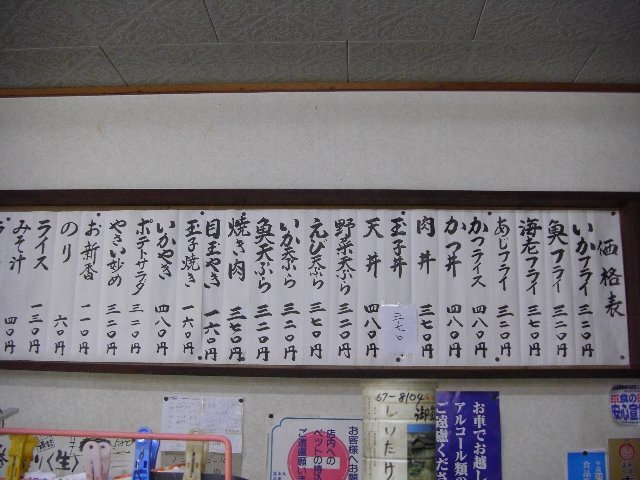 価格表
いかフライ 三二〇円
魚フライ 三二〇円
海老フライ 三七〇円
あじフライ 三二〇円
かつライス 四八〇円
かつ丼 四八〇円
肉丼 三七〇円
玉子丼 三七〇
天丼 四八〇円
野菜天ぷら 三二〇円
えび天ぷら 三七〇円
いか天ぷら 三二〇円
魚天ぷら 三二〇円
焼き肉 三七〇円
目玉やき 一六〇円
玉子焼き 一六〇円
いかやき 四八〇円
ポテトサラダ 三二〇円
やさい炒め 三二〇円
お新香 一一〇円
のり 六〇円
ライス 一三〇円
みそ汁 四〇円
食の
安心宣
お車でお越し
アルコール類の
ご遠慮くださ
67-8104
しりたけ
お客様へお願
店内への
ペットの持込
ご遠慮願いま
く〈生〉